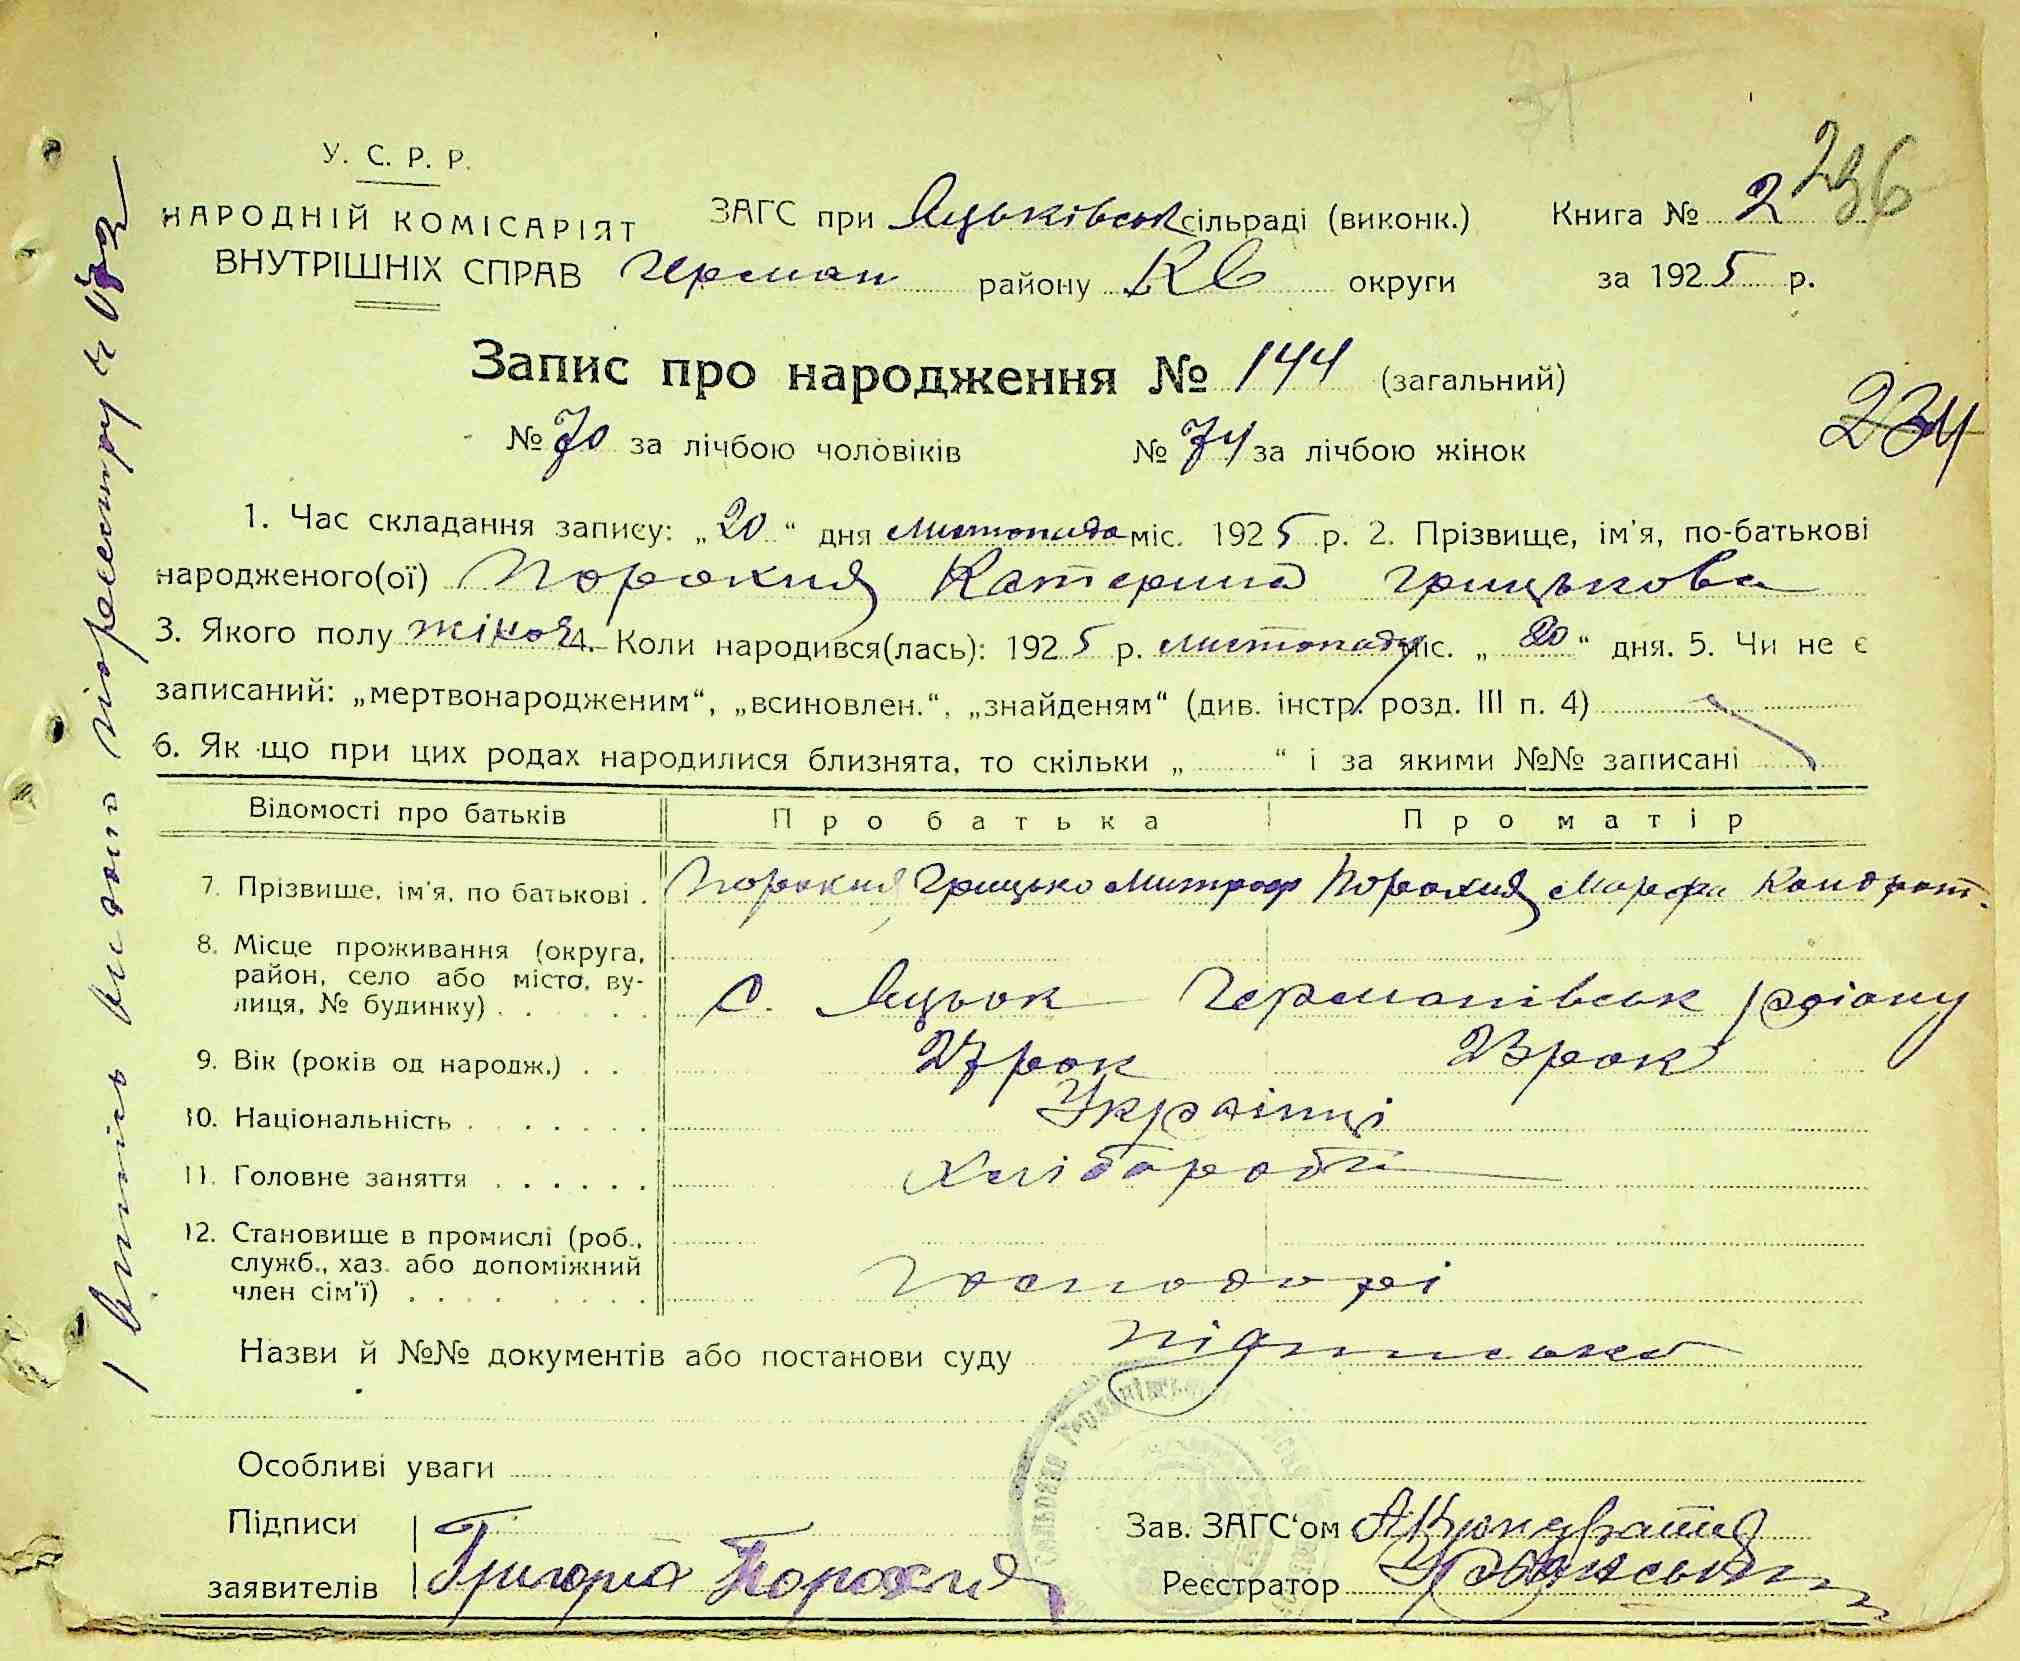 236
У. С. Р. Р.
НАРОДНІЙ КОМІСАРІЯТ
ВНУТРІШНІХ СПРАВ
ЗАГС при Яцьківськ сільраді (виконк.)
Книга № 2
Герман району КВ округи
за 1925 р.
Запис про народження № 144 (загальний)
234
№ 70 за лічбою чоловіків № 74 за лічбою жінок
1. Час складання запису: „20“ дня листопада міс. 1925 р. 2. Прізвище, ім'я, по-батькові
народженого(ої) Порохня Катерина Грицькова
3. Якого полу жіноч 4. Коли народився(лась): 1925 р. листопаду міс. „20“ дня. 5. Чи не є
записаний: „мертвонародженим“, „всиновлен.“, „знайденям“ (див. інстр. розд. III п. 4)
6. Як що при цих родах народилися близнята, то скільки „ “ і за якими №№ записані
Відомості про батьків Про батька Про матір
7. Прізвище, ім'я, по батькові . Порохня Грицько Митроф Порохня Марфа Кондрат.
8. Місце проживання (округа,
район, село або місто, ву-
лиця, № будинку) . . . . . с. Яцьок Германівськ району
9. Вік (років од народж.) . . 27 рок 23 рок
10. Національність . . . . . . . Українці
11. Головне заняття . . . . . . Хлібороби
12. Становище в промислі (роб.,
служб., хаз. або допоміжний
член сім'ї) . . . . . . . . Господарі
Назви й №№ документів або постанови суду підписька
Особливі уваги
Підписи
заявителів Григорій Порохня
Зав. ЗАГС'ом
Реєстратор
1 випись видано по реєстру №